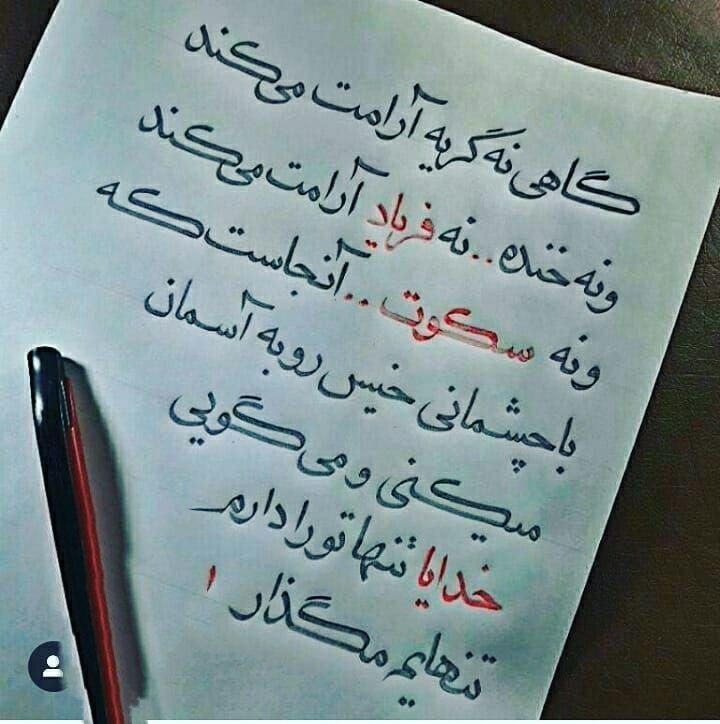 گاهی نه گریه آرامت می‌کند
ونه خنده..نه فریاد آرامت می‌کند
ونه سکوت..آنجاست که
با چشمانی خیس رو به آسمان
میکنی و می‌گویی
خدایا تنها تو را دارم
تنهایم مگذار !